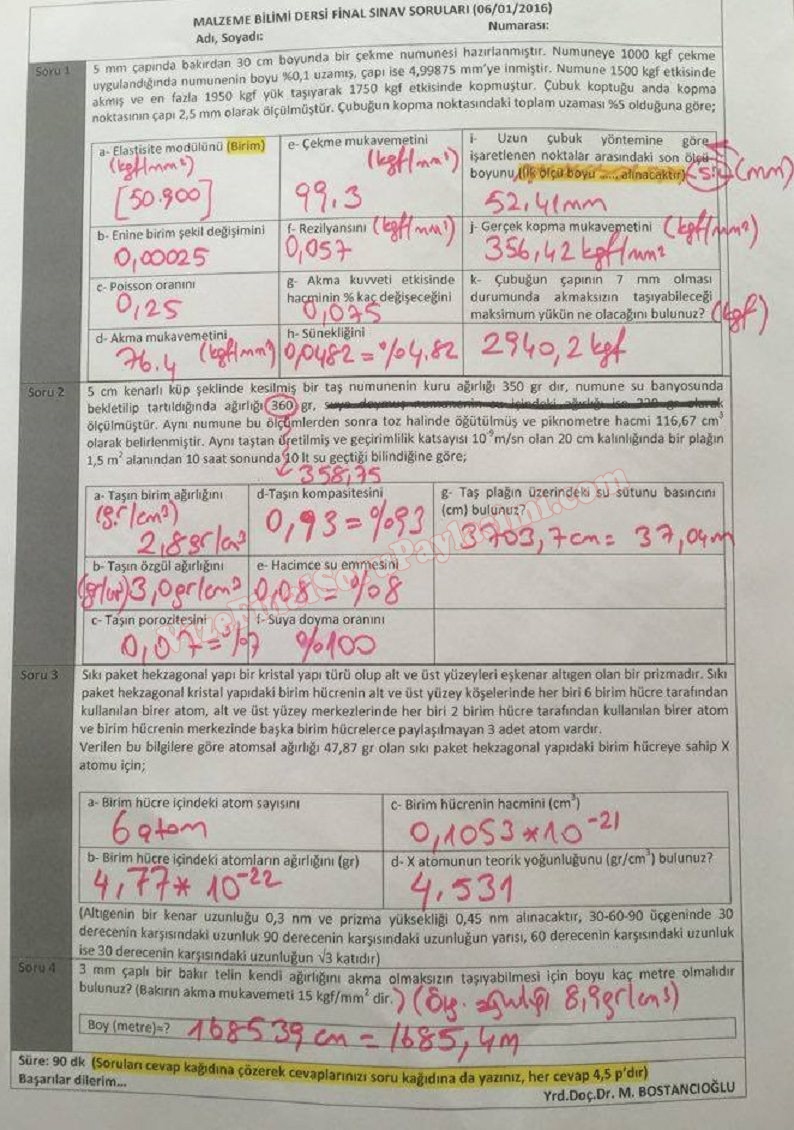 MALZEME BİLİMİ DERSİ FİNAL SINAV SORULARI (06/01/2016)
Adı, Soyadı: Numarası:
Soru 1
5 mm çapında bakırdan 30 cm boyunda bir çekme numunesi hazırlanmıştır. Numuneye 1000 kgf çekme
uygulandığında numunenin boyu %0,1 uzamış, çapı ise 4,99875 mm'ye inmiştir. Numune 1500 kgf etkisinde
akmış ve en fazla 1950 kgf yük taşıyarak 1750 kgf etkisinde kopmuştur. Çubuk koptuğu anda kopma
noktasının çapı 2,5 mm olarak ölçülmüştür. Çubuğun kopma noktasındaki toplam uzaması %5 olduğuna göre;
a- Elastisite modülünü (Birim)
(kgf/mm²)
[50.900]
e- Çekme mukavemetini
(kgf/mm²)
99.3
i- Uzun çubuk yöntemine göre
işaretlenen noktalar arasındaki son ölçü
boyunu (ilk ölçü boyu ..... alınacaktır) (mm)
52,41mm
b- Enine birim şekil değişimini
0,00025
f- Rezilyansını (kgf/mm²)
0,057
j- Gerçek kopma mukavemetini (kgf/mm²)
356,42 kgf/mm²
c- Poisson oranını
0,25
g- Akma kuvveti etkisinde
hacminin % kaç değişeceğini
0,075
k- Çubuğun çapının 7 mm olması
durumunda akmaksızın taşıyabileceği
maksimum yükün ne olacağını bulunuz? (kgf)
2940,2 kgf
d- Akma mukavemetini
76.4 (kgf/mm²)
h- Sünekliğini
0,0482 = %4.82
Soru 2
5 cm kenarlı küp şeklinde kesilmiş bir taş numunenin kuru ağırlığı 350 gr dır, numune su banyosunda
bekletilip tartıldığında ağırlığı 360 gr, suya doymuş numunenin su içindeki ağırlığı ise 220 gr olarak
ölçülmüştür. Aynı numune bu ölçümlerden sonra toz halinde öğütülmüş ve piknometre hacmi 116,67 cm³
olarak belirlenmiştir. Aynı taştan üretilmiş ve geçirimlilik katsayısı 10⁻⁹m/sn olan 20 cm kalınlığında bir plağın
1,5 m² alanından 10 saat sonunda 10 lt su geçtiği bilindiğine göre;
358,75
a- Taşın birim ağırlığını
(gr/cm³)
2,8gr/cm³
d-Taşın kompasitesini
0,93 = %93
g- Taş plağın üzerindeki su sütunu basıncını
(cm) bulunuz?
3703,7cm = 37,04m
b- Taşın özgül ağırlığını
3,0gr/cm³
e- Hacimce su emmesini
0,08 = %8
c- Taşın porozitesini
0,07=%7
f- Suya doyma oranını
%100
VizeFinalSoruPaylasimi.com
Soru 3
Sıkı paket hekzagonal yapı bir kristal yapı türü olup alt ve üst yüzeyleri eşkenar altıgen olan bir prizmadır. Sıkı
paket hekzagonal kristal yapıdaki birim hücrenin alt ve üst yüzey köşelerinde her biri 6 birim hücre tarafından
kullanılan birer atom, alt ve üst yüzey merkezlerinde her biri 2 birim hücre tarafından kullanılan birer atom
ve birim hücrenin merkezinde başka birim hücrelerce paylaşılmayan 3 adet atom vardır.
Verilen bu bilgilere göre atomsal ağırlığı 47,87 gr olan sıkı paket hekzagonal yapıdaki birim hücreye sahip X
atomu için;
a- Birim hücre içindeki atom sayısını
6 atom
c- Birim hücrenin hacmini (cm³)
0,1053*10⁻²¹
b- Birim hücre içindeki atomların ağırlığını (gr)
4,77* 10⁻²²
d- X atomunun teorik yoğunluğunu (gr/cm³) bulunuz?
4,531
(Altıgenin bir kenar uzunluğu 0,3 nm ve prizma yüksekliği 0,45 nm alınacaktır, 30-60-90 üçgeninde 30
derecenin karşısındaki uzunluk 90 derecenin karşısındaki uzunluğun yarısı, 60 derecenin karşısındaki uzunluk
ise 30 derecenin karşısındaki uzunluğun √3 katıdır)
Soru 4
3 mm çaplı bir bakır telin kendi ağırlığını akma olmaksızın taşıyabilmesi için boyu kaç metre olmalıdır
bulunuz? (Bakırın akma mukavemeti 15 kgf/mm² dir.) (Öz. ağırlığı 8,9gr/cm³)
Boy (metre)=? 168539 cm = 1685,4m
Süre: 90 dk (Soruları cevap kağıdına çözerek cevaplarınızı soru kağıdına da yazınız, her cevap 4,5 p'dır)
Başarılar dilerim...
Yrd.Doç.Dr. M. BOSTANCIOĞLU